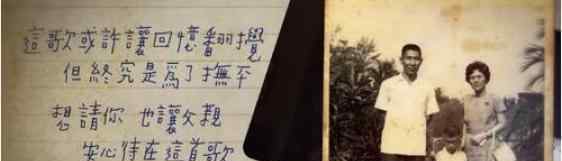 這歌或許讓回憶翻攪
但終究是為了撫平
想請你 也讓父親
安心待在這首歌